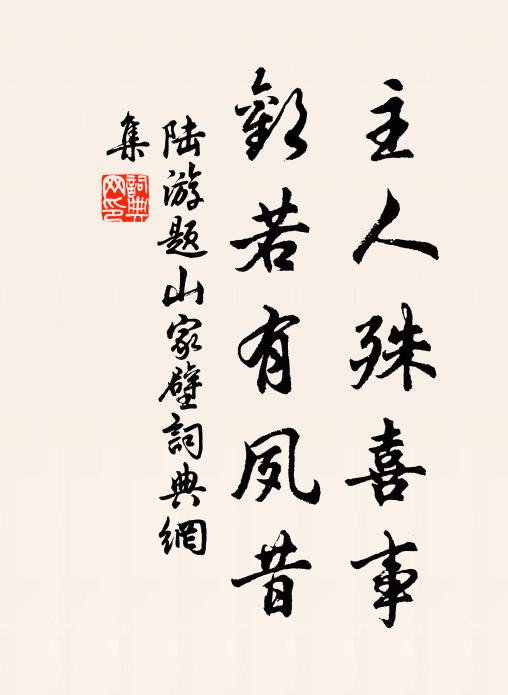 主人殊喜事
歡若有夙昔
陸游題山家壁詞典網
集
詞典網印